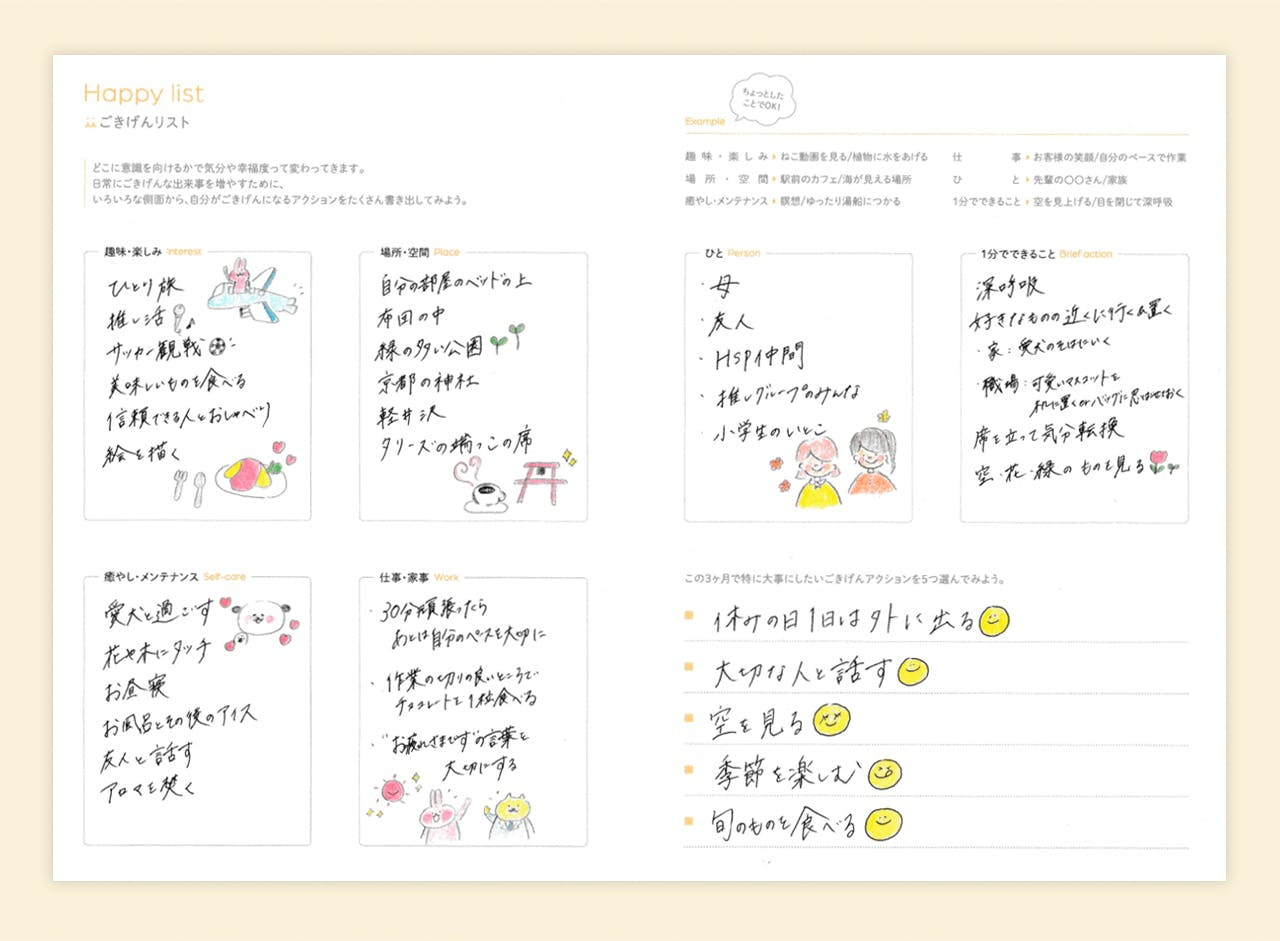 Happy list
ごきげんリスト
どこに意識を向けるかで気分や幸福度って変わってきます。
日常にごきげんな出来事を増やすために、
いろいろな側面から、自分がごきげんになるアクションをたくさん書き出してみよう。
趣味・楽しみ Interest
ひとり旅
推し活
サッカー観戦
美味しいものを食べる
信頼できる人とおしゃべり
絵を描く
場所・空間 Place
自分の部屋のベッドの上
布団の中
緑の多い公園
京都の神社
軽井沢
タリーズの端っこの席
癒やし・メンテナンス Self-care
愛犬と過ごす
花や木にタッチ
お昼寝
お風呂とその後のアイス
友人と話す
アロマを焚く
仕事・家事 Work
・30分頑張ったら
あとは自分のペースを大切に
・作業の切りの良いところで
チョコレートを1粒食べる
・"お疲れさまです"の言葉を
大切にする
ちょっとした
ことでOK!
Example
趣味・楽しみ ねこ動画を見る/植物に水をあげる
場所・空間 駅前のカフェ/海が見える場所
癒やし・メンテナンス 瞑想/ゆったり湯船につかる
仕事 お客様の笑顔/自分のペースで作業
ひと 先輩の〇〇さん/家族
1分でできること 空を見上げる/目を閉じて深呼吸
ひと Person
・母
・友人
・HSP仲間
・推しグループのみんな
・小学生のいとこ
1分でできること Brief action
深呼吸
好きなものの近くに行く&置く
・家:愛犬のそばにいく
・職場:可愛いマスコットを
机に置くorバッグに忍ばせておく
席を立って気分転換
空・花・緑のものを見る
この3ヶ月で特に大事にしたいごきげんアクションを5つ選んでみよう。
休みの日1日は外に出る
大切な人と話す
空を見る
季節を楽しむ
旬のものを食べる